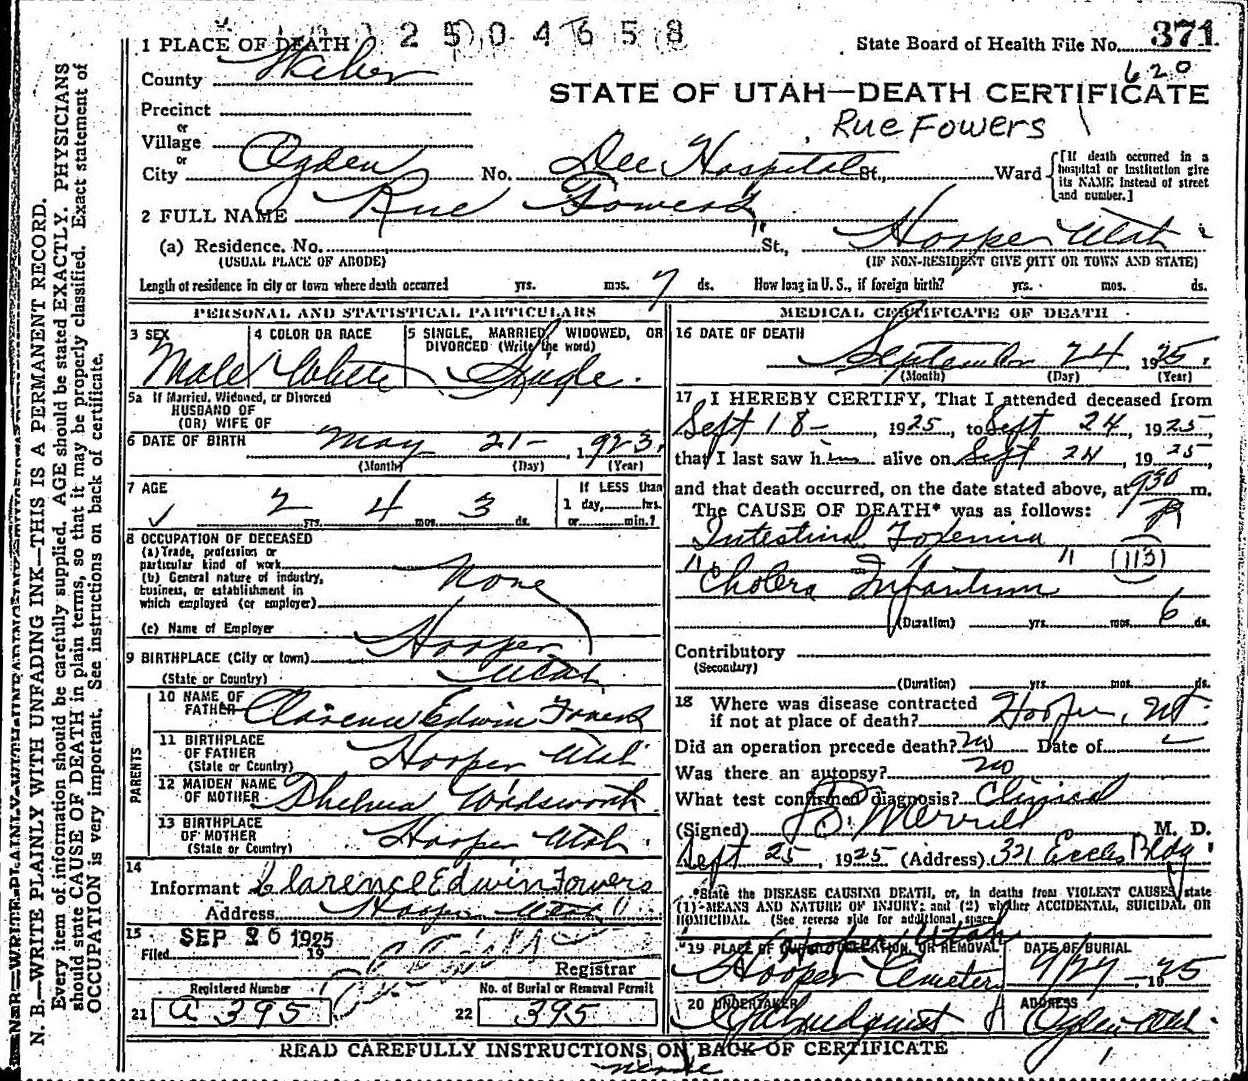 2504658
1 PLACE OF DEATH
State Board of Health File No. 371
620
County Weber
STATE OF UTAH—DEATH CERTIFICATE
Precinct
Rue Fowers
or
Village
or
City Ogden No. Dee Hospital St., Ward
[If death occurred in a hospital or institution give its NAME instead of street and number.]
2 FULL NAME Rue Fowers
(a) Residence. No. St., Hooper Utah
(USUAL PLACE OF ABODE) (IF NON-RESIDENT GIVE CITY OR TOWN AND STATE)
Length of residence in city or town where death occurred yrs. mos. 7 ds. How long in U. S., if foreign birth? yrs. mos. ds.
PERSONAL AND STATISTICAL PARTICULARS
3 SEX Male
4 COLOR OR RACE White
5 SINGLE, MARRIED, WIDOWED, OR
DIVORCED (Write the word)
Single.
5a If Married, Widowed, or Divorced
HUSBAND OF
(OR) WIFE OF
6 DATE OF BIRTH May 21- 1923.
(Month) (Day) (Year)
7 AGE 2 yrs. 4 mos. 3 ds.
If LESS than
1 day, hrs.
or min.?
8 OCCUPATION OF DECEASED
(a) Trade, profession or
particular kind of work
(b) General nature of industry,
business, or establishment in
which employed (or employer)
None
(c) Name of Employer
9 BIRTHPLACE (City or town) Hooper
(State or Country) Utah
PARENTS
10 NAME OF
FATHER Clarence Edwin Fowers
11 BIRTHPLACE
OF FATHER
(State or Country) Hooper Utah
12 MAIDEN NAME
OF MOTHER Thelma Wadsworth
13 BIRTHPLACE
OF MOTHER
(State or Country) Hooper Utah.
14
Informant Clarence Edwin Fowers
Address Hooper Utah
15
Filed SEP 26 1925 19
Registrar
Registered Number No. of Burial or Removal Permit
21 A 395 22 395
MEDICAL CERTIFICATE OF DEATH
16 DATE OF DEATH
September 24, 1925
(Month) (Day) (Year)
17 I HEREBY CERTIFY, That I attended deceased from
Sept 18-, 1925, to Sept 24, 1925,
that I last saw him alive on Sept 24, 1925,
and that death occurred, on the date stated above, at 930 P m.
The CAUSE OF DEATH* was as follows:
Intestinal Toxemia
"Cholera Infantum" (113)
(Duration) yrs. mos. 6 ds.
Contributory
(Secondary)
(Duration) yrs. mos. ds.
18 Where was disease contracted
if not at place of death? Hooper, Ut.
Did an operation precede death? No Date of
Was there an autopsy? no
What test confirmed diagnosis? Clinical
(Signed) Merrill M. D.
Sept 25, 1925 (Address) 321 Eccles Bldg
*State the DISEASE CAUSING DEATH, or, in deaths from VIOLENT CAUSES, state
(1) MEANS AND NATURE OF INJURY; and (2) whether ACCIDENTAL, SUICIDAL OR
HOMICIDAL. (See reverse side for additional space)
19 PLACE OF BURIAL, CREMATION, OR REMOVAL DATE OF BURIAL
Hooper Cemetery 9/27, 1925
20 UNDERTAKER ADDRESS
Ogden Utah.
READ CAREFULLY INSTRUCTIONS ON BACK OF CERTIFICATE
N. B.—WRITE PLAINLY WITH UNFADING INK—THIS IS A PERMANENT RECORD.
Every item of information should be carefully supplied. AGE should be stated EXACTLY. PHYSICIANS
should state CAUSE OF DEATH in plain terms, so that it may be properly classified. Exact statement of
OCCUPATION is very important. See instructions on back of certificate.